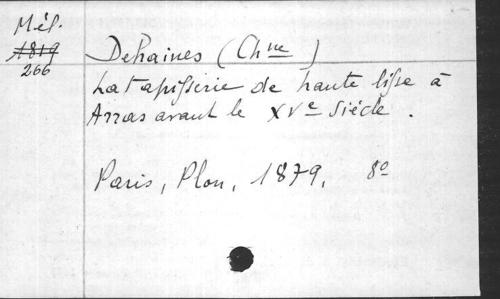 Mél.
1819
266
Dehaines (Chne)
La tapisserie de haute lisse à
Arras avant le XVe Siècle.
Paris, Plon, 1879, 8o